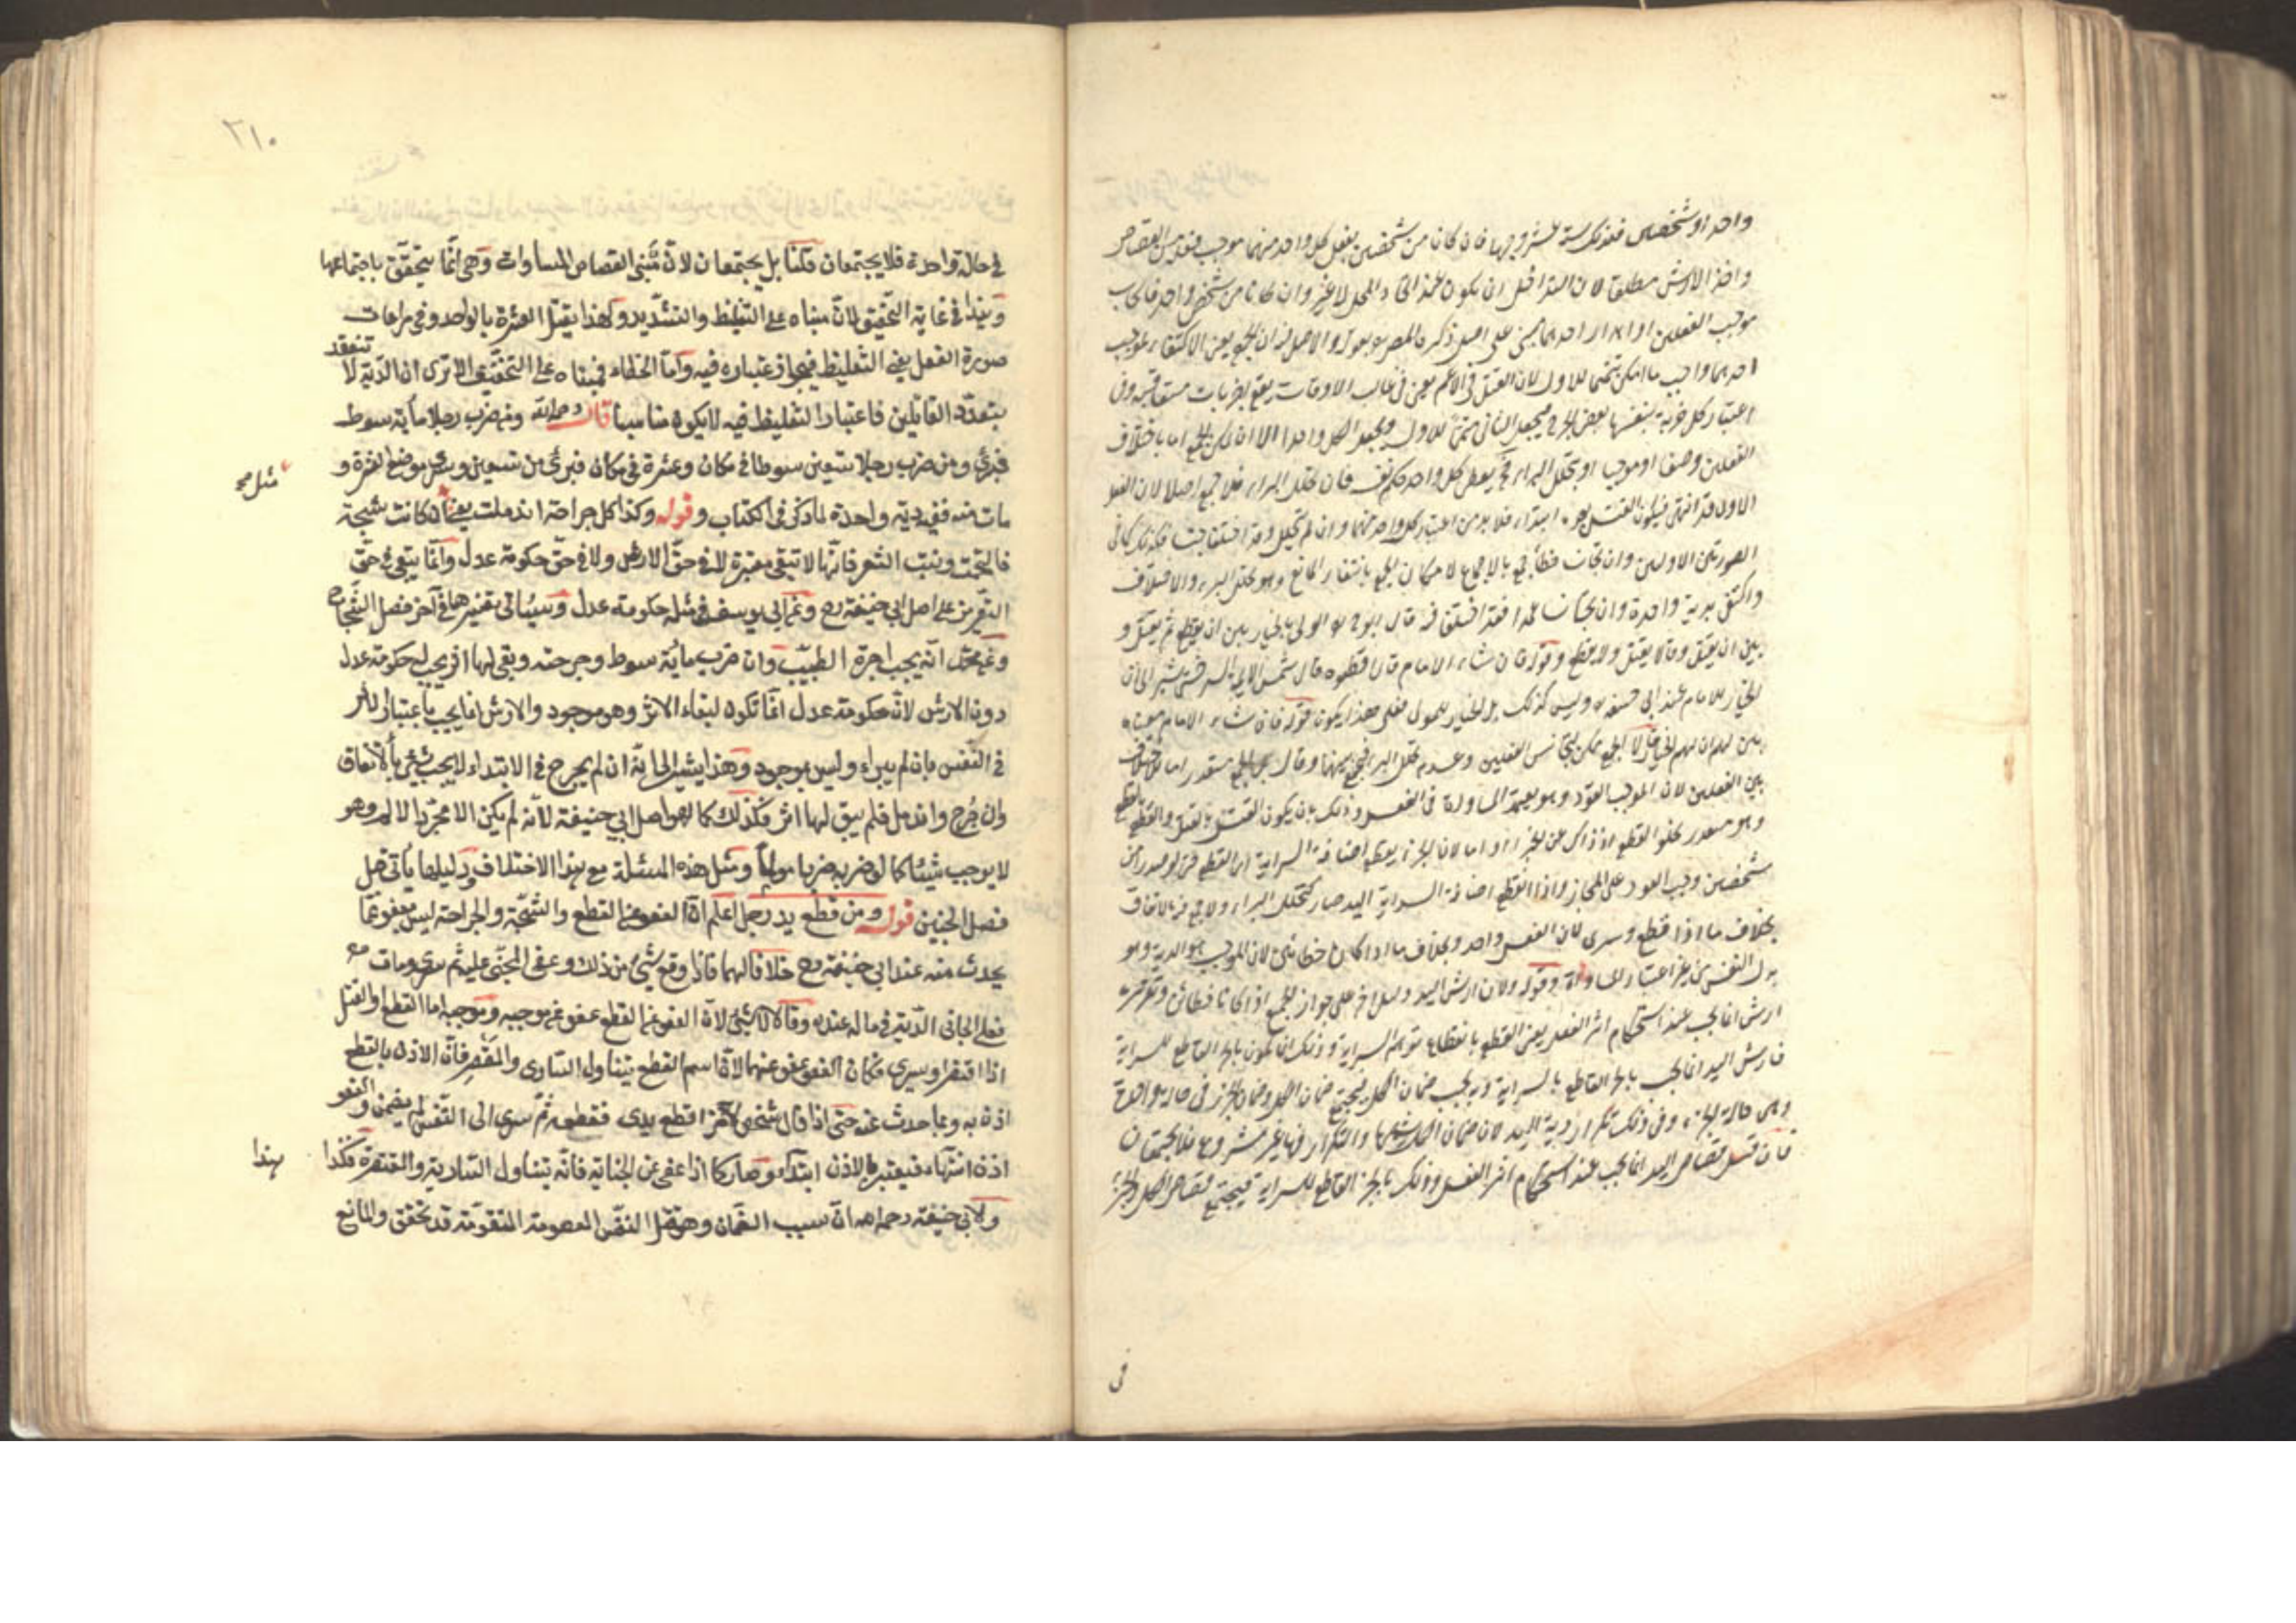 واحد او شخصين فتلك ستة عشر وجها فان كانا من شخصين يفعل كل واحد منهما موجب فعله من القصاص
واخذ الارش مطلقا لان التداخل ان يكون عند اتحاد المحل لا غير وان كانا من شخص واحد فايجاب
موجب الفعلين او اهدار احدهما مبني على اصل ذكره المصنف بقوله والاصل فيه ان الجمع يعني الاكتفاء بموجب
احدهما واجب ما امكن تتميما للاول لان القتل في الاعم يعني في غالب الاوقات يقع بضربات متعاقبة وفي
اعتبار كل ضربة بنفسها بعض الحرج فيجعل الثاني متمما للاول ويجعل الكل واحدا الا ان لا يمكن الجمع اما باختلاف
الفعلين وصفا او موجبا او بتخلل البرء فحينئذ يعطى كل واحد حكم نفسه فان تخلل البرء فلا جمع اصلا لان الفعل
الاول قد انتهى فيكون القتل بعده ابتداء فلا بد من اعتبار كل واحد منهما وان لم يتخلل وقد اختلفا جنسا فكذلك كما في
الصورتين الاوليين وان تجانسا خطأ يجمع بالاجماع لامكان الجمع بانتفاء المانع وهو تخلل البرء والاختلاف
واكتفي بدية واحدة وان تجانسا عمدا فقد اختلفوا فيه قال ابو ح رح الولي بالخيار بين ان يقطع ثم يقتل و
بين ان يقتل وقالا يقتل ولا يقطع وقوله فان شاء الامام قال اقطعوه قال شمس الائمة السرخسي يشير الى ان
الخيار للامام عند ابي حنيفة وليس كذلك بل الخيار للمولى فعلى هذا يكون قوله فان شاء الامام معناه
بين لهم ان لهم الخيار لهما الجمع ممكن لتجانس الفعلين وعدم تخلل البرء فيجمع بينهما وقال ابو ح الجمع متعذر اما للاختلاف
بين الفعلين لان الموجب القود وهو يعتمد المساواة في الفعل وذلك بان يكون القتل بالقتل والقطع بالقطع
وهو متعذر
شخصين وجب القود على الجاز واذا انقطع اضافة السراية اليه صار كتخلل البرء ولا جمع فيه بالاتفاق
بخلاف ما اذا قطع وسرى لان الفعل واحد وبخلاف ما اذا كانا خطائين لان الموجب هو الدية وهو
بدل النفس من غير اعتبار المساواة وقوله ولان ارش اليد دليل اخر على جواز الجمع اذا كانا خطائين وتقريره
ارش انما يجب عند استحكام اثر الفعل يعني القطع بانقطاع توهم السراية وذلك انما يكون بالحز القاطع للسراية
فارش اليد انما يجب بالحز القاطع بالسراية وبه يجب ضمان الكل فيجتمع ضمان الكل وضمان الجزء في حالة واحدة
وهي حالة الحز وفي ذلك تكرار دية اليد لان ضمان الكل يشملها والتكرار فيها غير مشروع فلا يجتمعان
فان قيل قصاص اليد انما يجب عند استحكام اثر الفعل وذلك بالحز القاطع للسراية فيجتمع قصاص الكل والجزء
في
٢١٠
في حالة واحدة فلا يجتمعان قلنا بل يجتمعان لان مبنى القصاص المساوات وهي انما يتحقق باجتماعهما
وهذا في غاية التحقيق لان مبناه على التغليظ والتشديد ولهذا يقتل العشرة بالواحد وفي مراعات
صورة الفعل يعني التغليظ فيجوز اعتباره فيه واما الخطاء فمبناه على التخفيف الا ترى ان الدية لا تتعدد
بتعدد القاتلين فاعتبار التغليظ فيه لا يكون مناسبا قال رحمه الله ومن ضرب رجلا مأية سوط
فبرئ ومن ضرب رجلا تسعين سوطا في مكان وعشرة في مكان فبرئ من تسعين وسرى موضع العشرة و
مات منه ففيه دية واحدة لما ذكر في الكتاب وقوله وكذا كل جراحة اندملت يعني مثل ان كانت شجة
فالتحمت ونبت الشعر فانها لا تبقى معتبرة لا في حق الارش ولا في حق حكومة عدل وانما يبقى في حق
التعزير على اصل ابي حنيفة رح وعن ابي يوسف في مثله حكومة عدل وسيأتي تفسيرها في آخر فصل الشجاج
وعن محمد انه يجب اجرة الطبيب وان ضرب مائة سوط وجرحته وبقي لها اثر يجب حكومة عدل
دون الارش لان حكومة عدل انما تكون لبقاء الاثر وهو موجود والارش انما يجب باعتبار الاثر
في النفس بان لم يبراء وليس بموجود وهذا يشير الى انه ان لم يجرح في الابتداء لا يجب شئ بالاتفاق
وان جرح واندمل فلم يبق لها اثر فكذلك كما هو اصل ابي حنيفة لانه لم يكن الا مجرد الالم وهو
لا يوجب شيئا كما لو ضربه ضربا مولما ومثل هذه المسئلة مع هذا الاختلاف ودليلها يأتي قبل
فصل الجنين قوله ومن قطع يد رجل اعلم ان العفو عن القطع والشجة والجراحة ليس بعفو عما
يحدث منه عند ابي حنيفة رح خلافا لهما فاذا وقع شئ من ذلك وعفى المجني عليه ثم سرى ومات
فعلى الجاني الدية في ماله عنده وقالا لا شئ لان العفو عن القطع عفو عن موجبه وموجبه اما القطع او القتل
اذا اقتصر او سرى فكان العفو عفوا عنهما لان اسم القطع يتناول الساري والمقتصر فان الاذن بالقطع
اذن به وبما حدث عنه حتى اذا قال شخص لآخر اقطع يدي فقطعه ثم سرى الى النفس لم يضمن والعفو
اذن انتهاء فيعتبر بالاذن ابتداء وصار كما اذا عفى عن الجناية فانه يتناول السارية والمقتصرة فكذا هذا
ولابي حنيفة رحمه الله ان سبب الضمان وهو قتل النفس المعصومة المتقومة قد تحقق والمانع